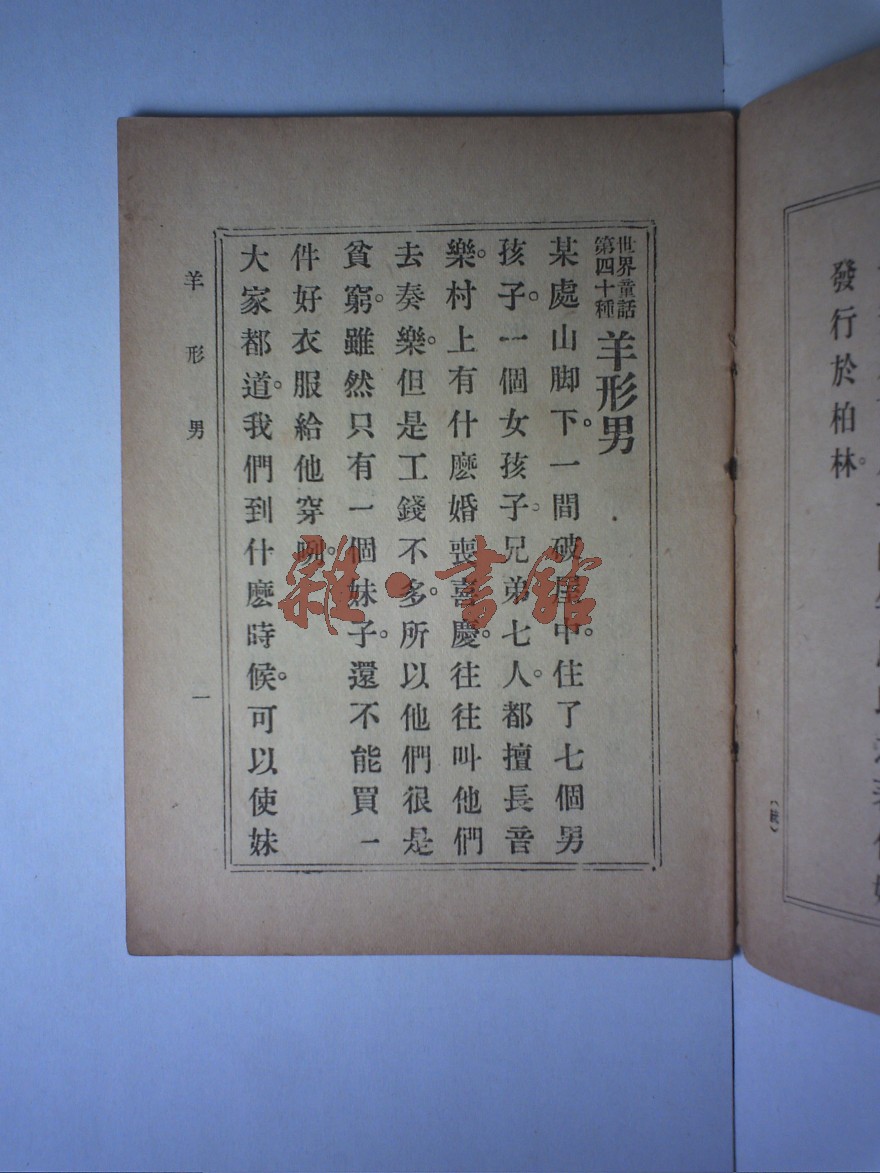 發行於柏林。
世界童話
第四十種
羊形男
某處山脚下。一間破屋中。住了七個男
孩子。一個女孩子。兄弟七人。都擅長音
樂。村上有什麽婚喪喜慶。往往叫他們
去奏樂。但是工錢不多。所以他們很是
貧窮。雖然只有一個妹子。還不能買一
件好衣服給他穿咧。
大家都道。我們到什麽時候。可以使妹
羊形男
一
雜·書館